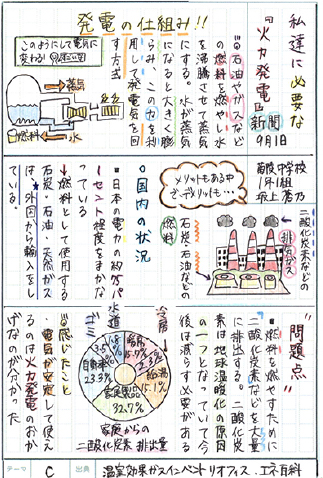 私達に必要な
『火力発電』新聞
9月1日
発電の仕組み!!
このようにして電気に
変わる!
蒸気
燃料
水
石油やガスなど
を燃やし水
を沸騰させて蒸気
になると大きく膨
らみ、この力を利
用して発電気を回
す方式
葡萄中学校
1年1組
坂上
メリットもある中
デメリットも…
二酸化炭素などの
排気ガス
燃料
石炭・石油などの
○国内の状況
▪日本の電力の約
セント程度をまかな
っている
↓燃料として使用する
石炭・石油・天然ガス
は、外国から輸入をし
ている。
"問題点"
▪燃料を燃やすために
二酸化炭素などを大量
に排出する。二酸化炭
素は地球温暖化の原因
の一つとなっていて今
後は減らす必要がある
冷房
暖房
15.7%
給湯
15.1%
家電製品
32.7%
自動車
23.3%
水道
家庭からの
二酸化炭素 排出量
感じたこと
・電気が安定して使え
るのは火力発電のおか
げなのが分かった
テーマ
C
出典
温室効果ガスインベントリオフィス、エネ百科